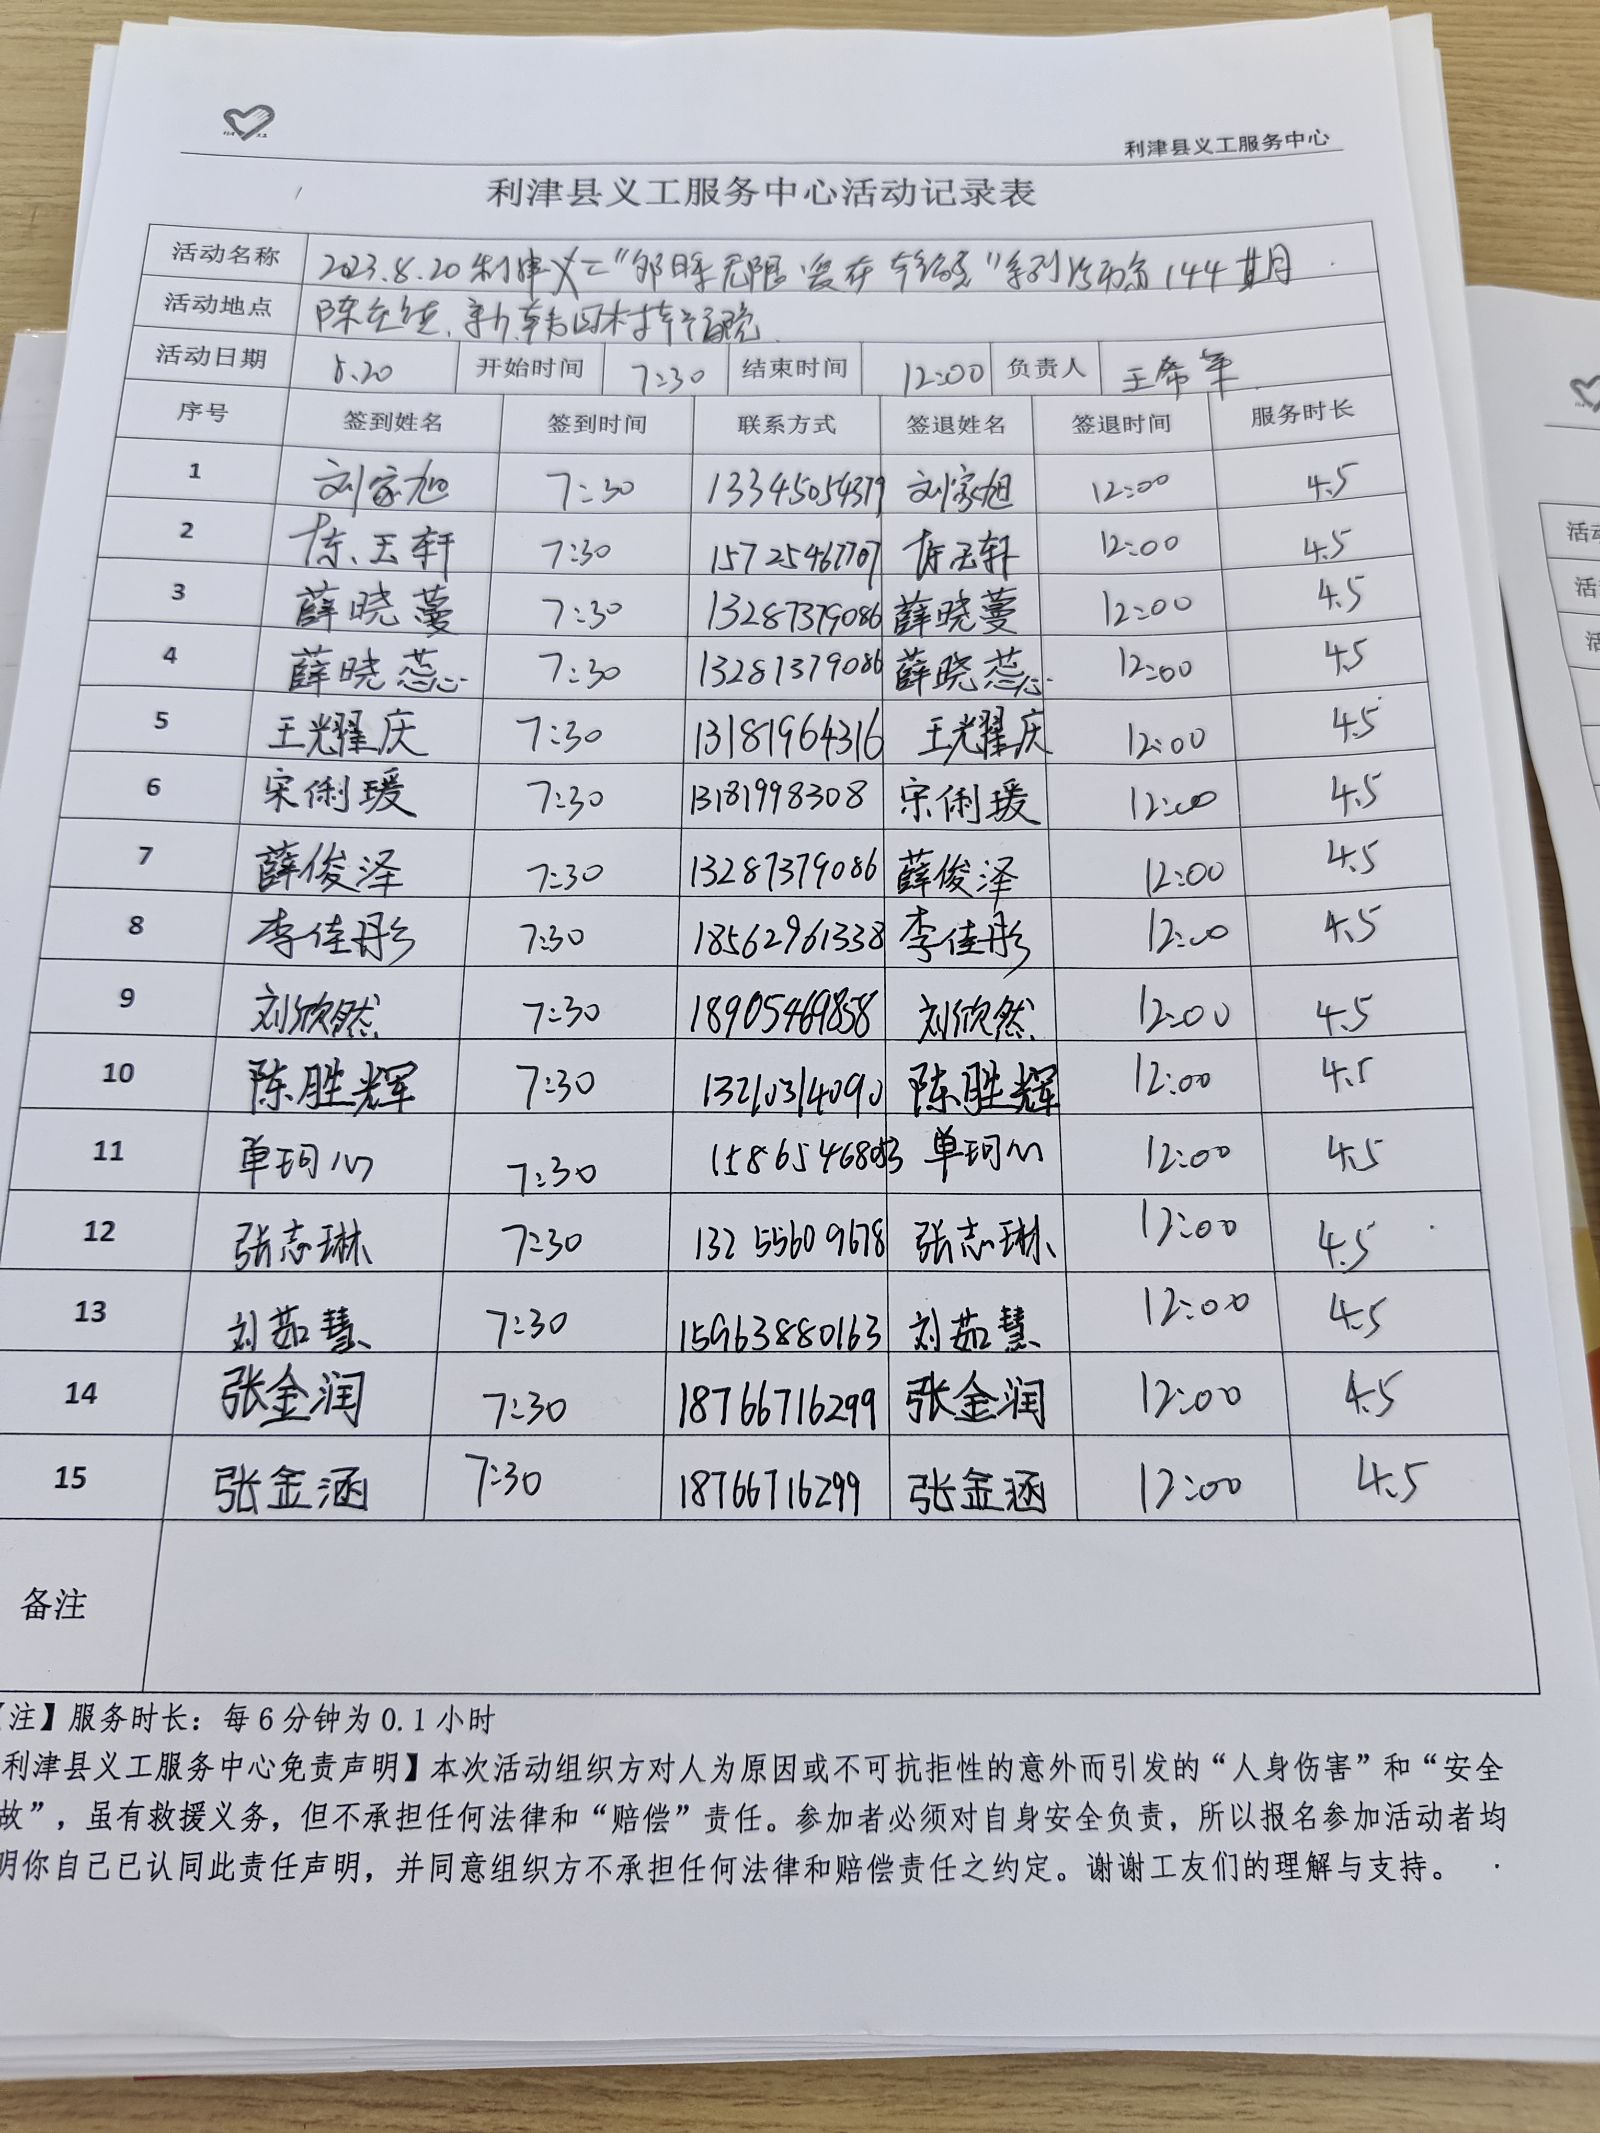 利津县义工服务中心
利津县义工服务中心活动记录表
活动名称 2023.8.20 利津义工“ 无限 爱在 ”系列活动第144期
活动地点 陈庄镇、
活动日期 8.20 开始时间 7:30 结束时间 12:00 负责人 王希军
序号 签到姓名 签到时间 联系方式 签退姓名 签退时间 服务时长
1 刘家旭 7:30 13345054379 刘家旭 12:00 4.5
2 陈玉轩 7:30 15725467707 陈玉轩 12:00 4.5
3 薛晓蔓 7:30 13287379086 薛晓蔓 12:00 4.5
4 薛晓蕊 7:30 13287379086 薛晓蕊 12:00 4.5
5 王耀庆 7:30 13181964316 王耀庆 12:00 4.5
6 宋俐瑷 7:30 13181998308 宋俐瑷 12:00 4.5
7 薛俊泽 7:30 13287379086 薛俊泽 12:00 4.5
8 李佳彤 7:30 18562961338 李佳彤 12:00 4.5
9 刘欣然 7:30 18905469858 刘欣然 12:00 4.5
10 陈胜辉 7:30 13210314090 陈胜辉 12:00 4.5
11 单珂心 7:30 单珂心 12:00 4.5
12 张志琳 7:30 13255609678 张志琳 12:00 4.5
13 刘茹慧 7:30 15963880163 刘茹慧 12:00 4.5
14 张金润 7:30 18766716299 张金润 12:00 4.5
15 张金涵 7:30 18766716299 张金涵 12:00 4.5
备注
【注】服务时长：每6分钟为0.1小时
利津县义工服务中心免责声明】本次活动组织方对人为原因或不可抗拒性的意外而引发的“人身伤害”和“安全
故”，虽有救援义务，但不承担任何法律和“赔偿”责任。参加者必须对自身安全负责，所以报名参加活动者均
明你自己已认同此责任声明，并同意组织方不承担任何法律和赔偿责任之约定。谢谢工友们的理解与支持。
活动
活
活